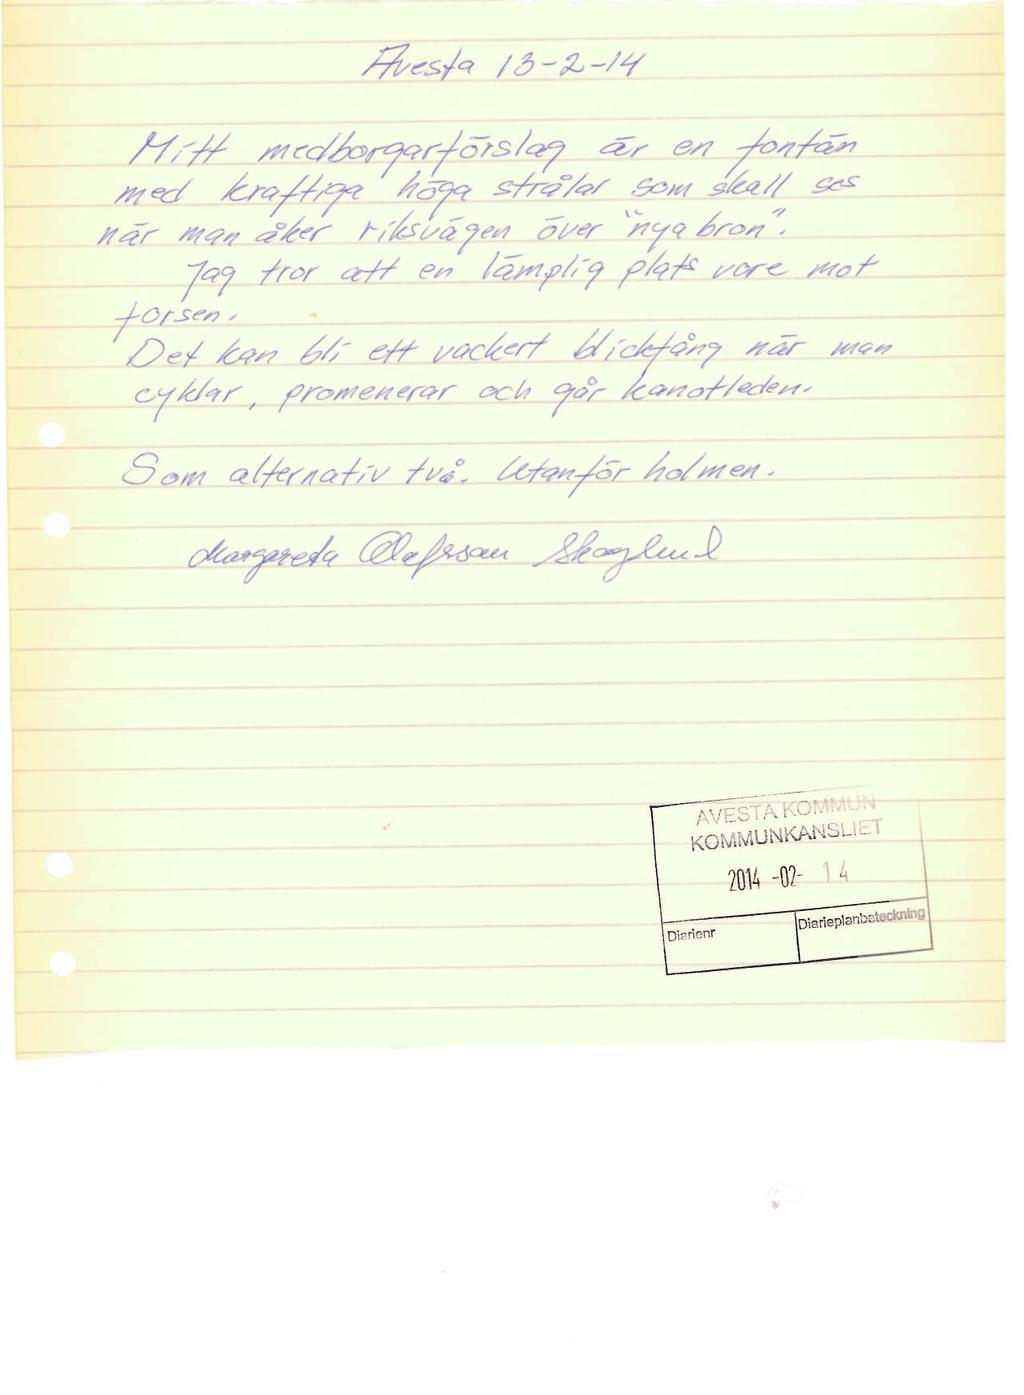 Avesta 13-2-14
Mitt medborgarförslag är en fontän
med kraftiga höga strålar som skall ses
när man åker riksvägen över "nya bron".
Jag tror att en lämplig plats vore mot
forsen.
Det kan bli ett vackert blickfång när man
cyklar, promenerar och går kanotleden.
Som alternativ två. Utanför holmen.
Margareta Olafsson Skoglund
AVESTA KOMMUN
KOMMUNKANSLIET
2014 -02- 14
Diarienr
Diarieplanbeteckning